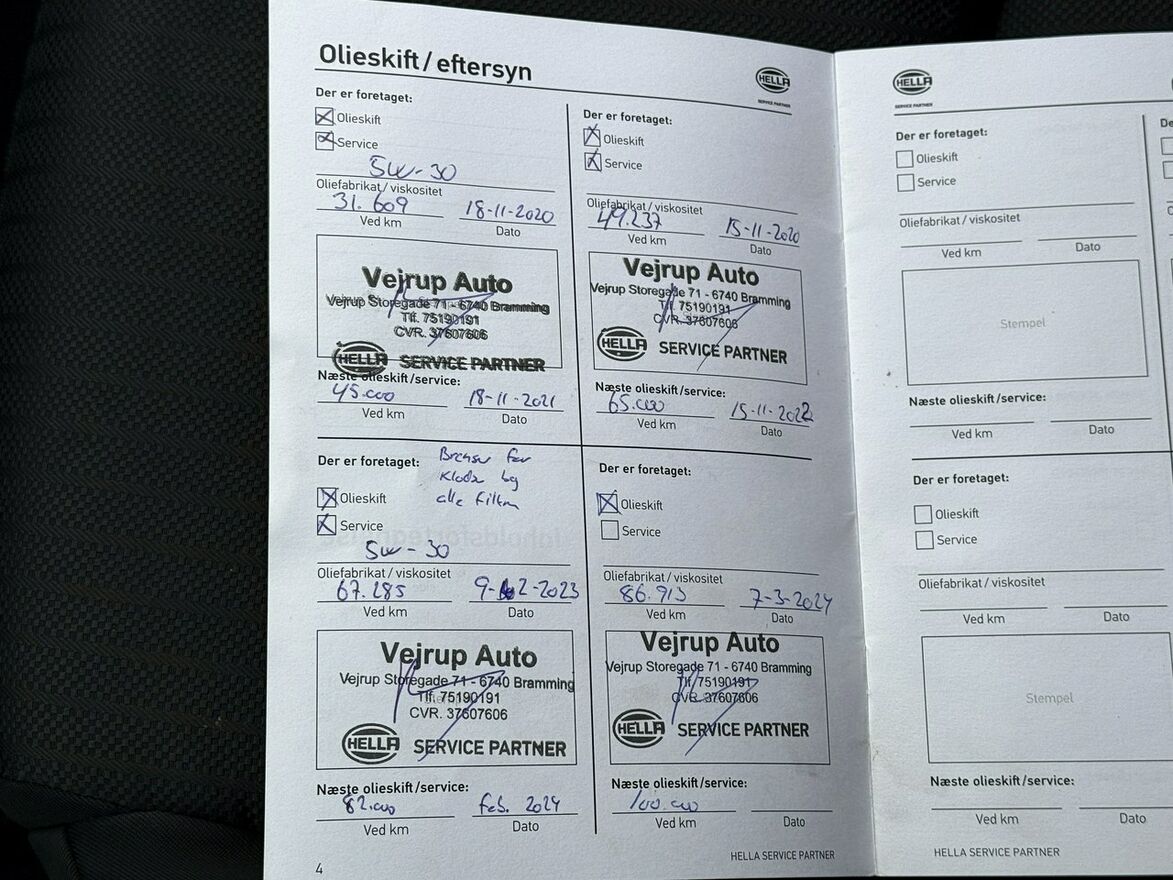 Olieskift / eftersyn
HELLA
SERVICE PARTNER
Der er foretaget:
Olieskift
Service
5W-30
Oliefabrikat / viskositet
31.609 18-11-2020
Ved km Dato
Vejrup Auto
Vejrup Storegade 71 - 6740 Bramming
Tlf. 75190191
CVR. 37607606
HELLA SERVICE PARTNER
Næste olieskift/service:
45.000 18-11-2021
Ved km Dato
Der er foretaget:
Olieskift
Service
Oliefabrikat / viskositet
49.237 15-11-2020
Ved km Dato
Vejrup Auto
Vejrup Storegade 71 - 6740 Bramming
Tlf. 75190191
CVR. 37607606
HELLA SERVICE PARTNER
Næste olieskift/service:
65.000 15-11-2022
Ved km Dato
Der er foretaget:
Olieskift
Service
alle filtre
5W-30
Oliefabrikat / viskositet
67.285 9-02-2023
Ved km Dato
Vejrup Auto
Vejrup Storegade 71 - 6740 Bramming
Tlf. 75190191
CVR. 37607606
HELLA SERVICE PARTNER
Næste olieskift/service:
82.000 feb. 2024
Ved km Dato
Der er foretaget:
Olieskift
Service
Oliefabrikat / viskositet
86.913 7-3-2024
Ved km Dato
Vejrup Auto
Vejrup Storegade 71 - 6740 Bramming
Tlf. 75190191
CVR. 37607606
HELLA SERVICE PARTNER
Næste olieskift/service:
100.000
Ved km Dato
4
HELLA SERVICE PARTNER
HELLA
SERVICE PARTNER
Der er foretaget:
Olieskift
Service
Oliefabrikat / viskositet
Ved km Dato
Stempel
Næste olieskift/service:
Ved km Dato
Der er foretaget:
Olieskift
Service
Oliefabrikat / viskositet
Ved km Dato
Stempel
Næste olieskift/service:
Ved km Dato
HELLA SERVICE PARTNER